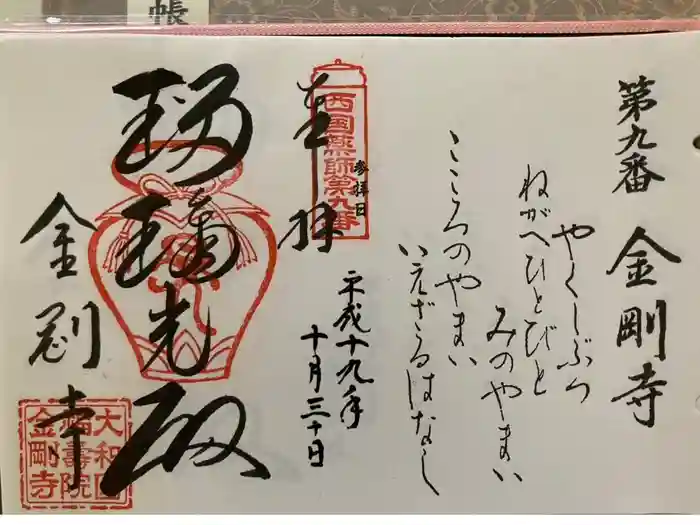 帳
第九番 金剛寺
やくしぶつ
ねがへひとびと
みのやまい
こころのやまい
いえざるはなし
奉拝
西国薬師第九番
参拝日
平成十九年
十月三十日
瑠璃光殿
金剛寺
大和国
福壽院
金剛寺